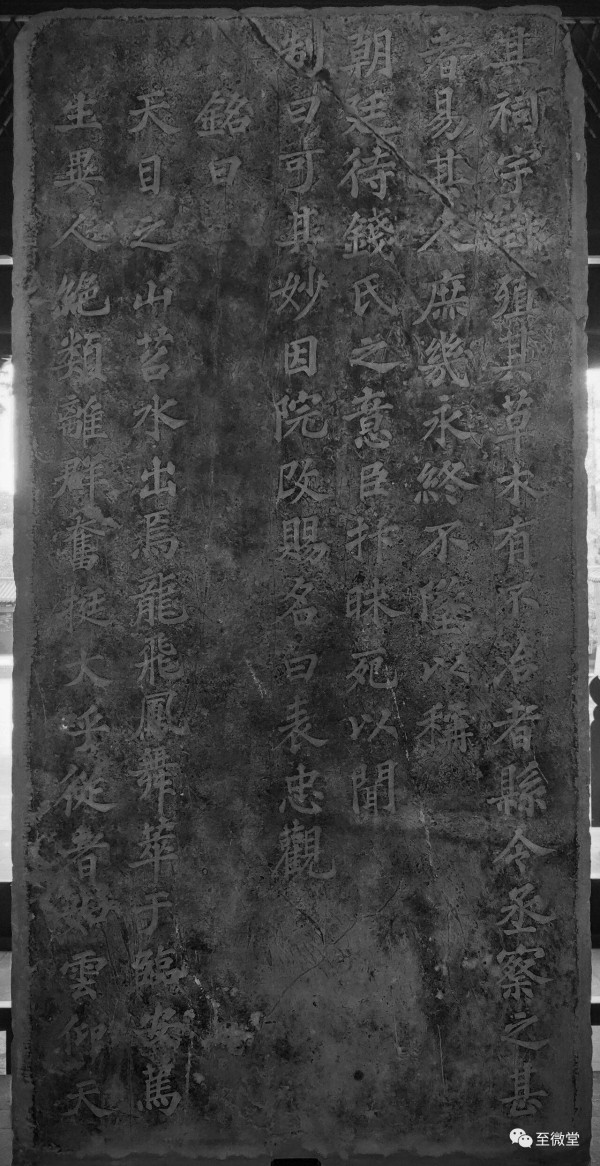 其祠宇封殖其草木有不治者縣令丞察之甚
者易其人庶幾永終不墜以稱
朝廷待錢氏之意臣抃昧死以聞
制曰可其妙因院改賜名曰表忠觀
銘曰
天目之山苕水出焉龍飛鳳舞萃于臨安篤
生異人絶類離群奮挺大乎從者如雲仰天
至微堂